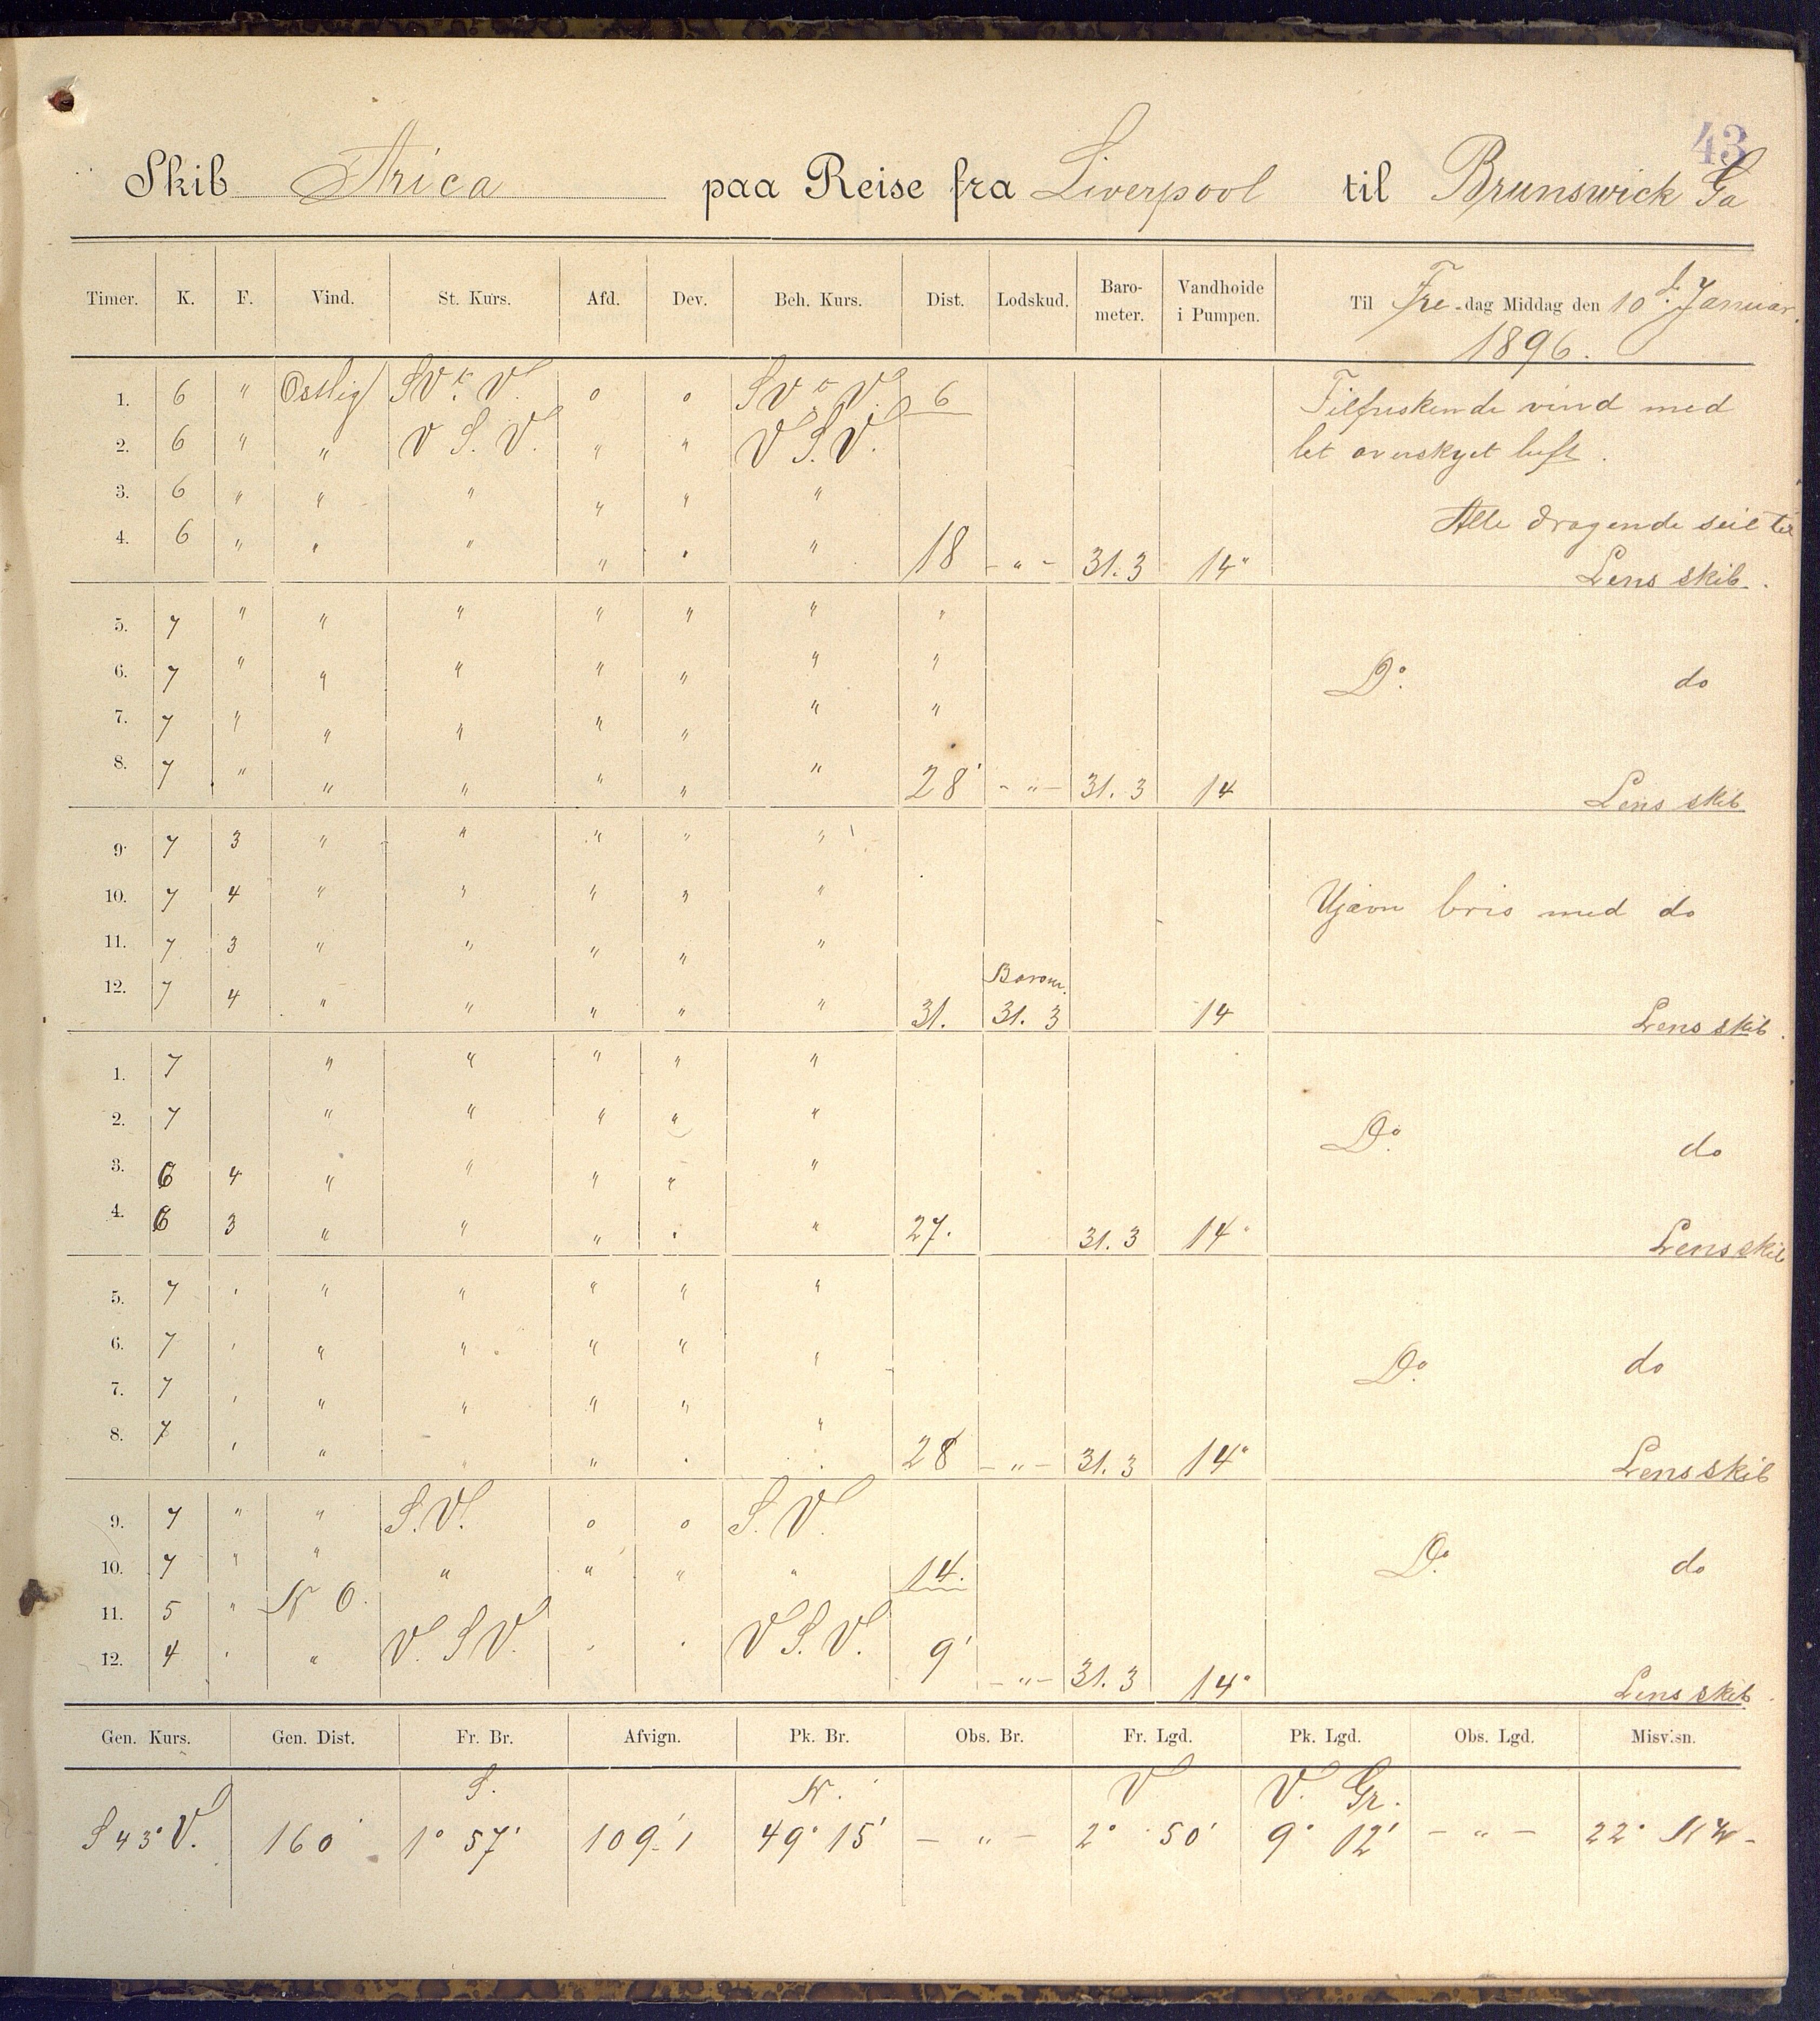 43
Skib Arica paa Reise fra Liverpool til Brunswick Ga
Timer. K. F. Vind. St. Kurs. Afd. Dev. Beh. Kurs. Dist. Lodskud. Baro-meter. Vandhoide i Pumpen. Til Fre-dag Middag den 10d. Januar.
1896.
1. 6 " Østlig SV t. V. 0 0 SV t. V. 6 Tilfriskende vind med
2. 6 " " V S. V. " " V S. V. let overskyet luft.
3. 6 " " " " " " Alle dragende seil til
4. 6 " " " " " " 18 - " - 31.3 14" Lens skib.
5. 7 " " " " " " "
6. 7 " " " " " " " Do. do
7. 7 " " " " " " "
8. 7 " " " " " " 28' - " - 31.3 14 Lens skib
9. 7 3 " " " " "
10. 7 4 " " " " " Ujævn bris med do
11. 7 3 " " " " " Barom.
12. 7 4 " " " " " 31. 31.3 14 Lens skib.
1. 7 " " " " "
2. 7 " " " " " Do. do
3. 6 4 " " " " "
4. 6 3 " " " " " 27. 31.3 14" Lens skib
5. 7 " " " " " "
6. 7 " " " " " " Do. do
7. 7 " " " " " "
8. 7 " " " " " " 28 - " - 31.3 14" Lens skib
9. 7 " " S. V. 0 0 S. V.
10. 7 " " " " " " 14. Do. do
11. 5 " N O.
12. 4 " " V. S V. " " V S. V. 9' - " - 31.3 14" Lens skib.
Gen. Kurs. Gen. Dist. Fr. Br. Afvign. Pk. Br. Obs. Br. Fr. Lgd. Pk. Lgd. Obs. Lgd. Misv.sn.
S. N. V V. Gr.
S 43° V. 160' 1° 57' 109'.1 49° 15' - " - 2° 50' 9° 12' - " - 22° NW-